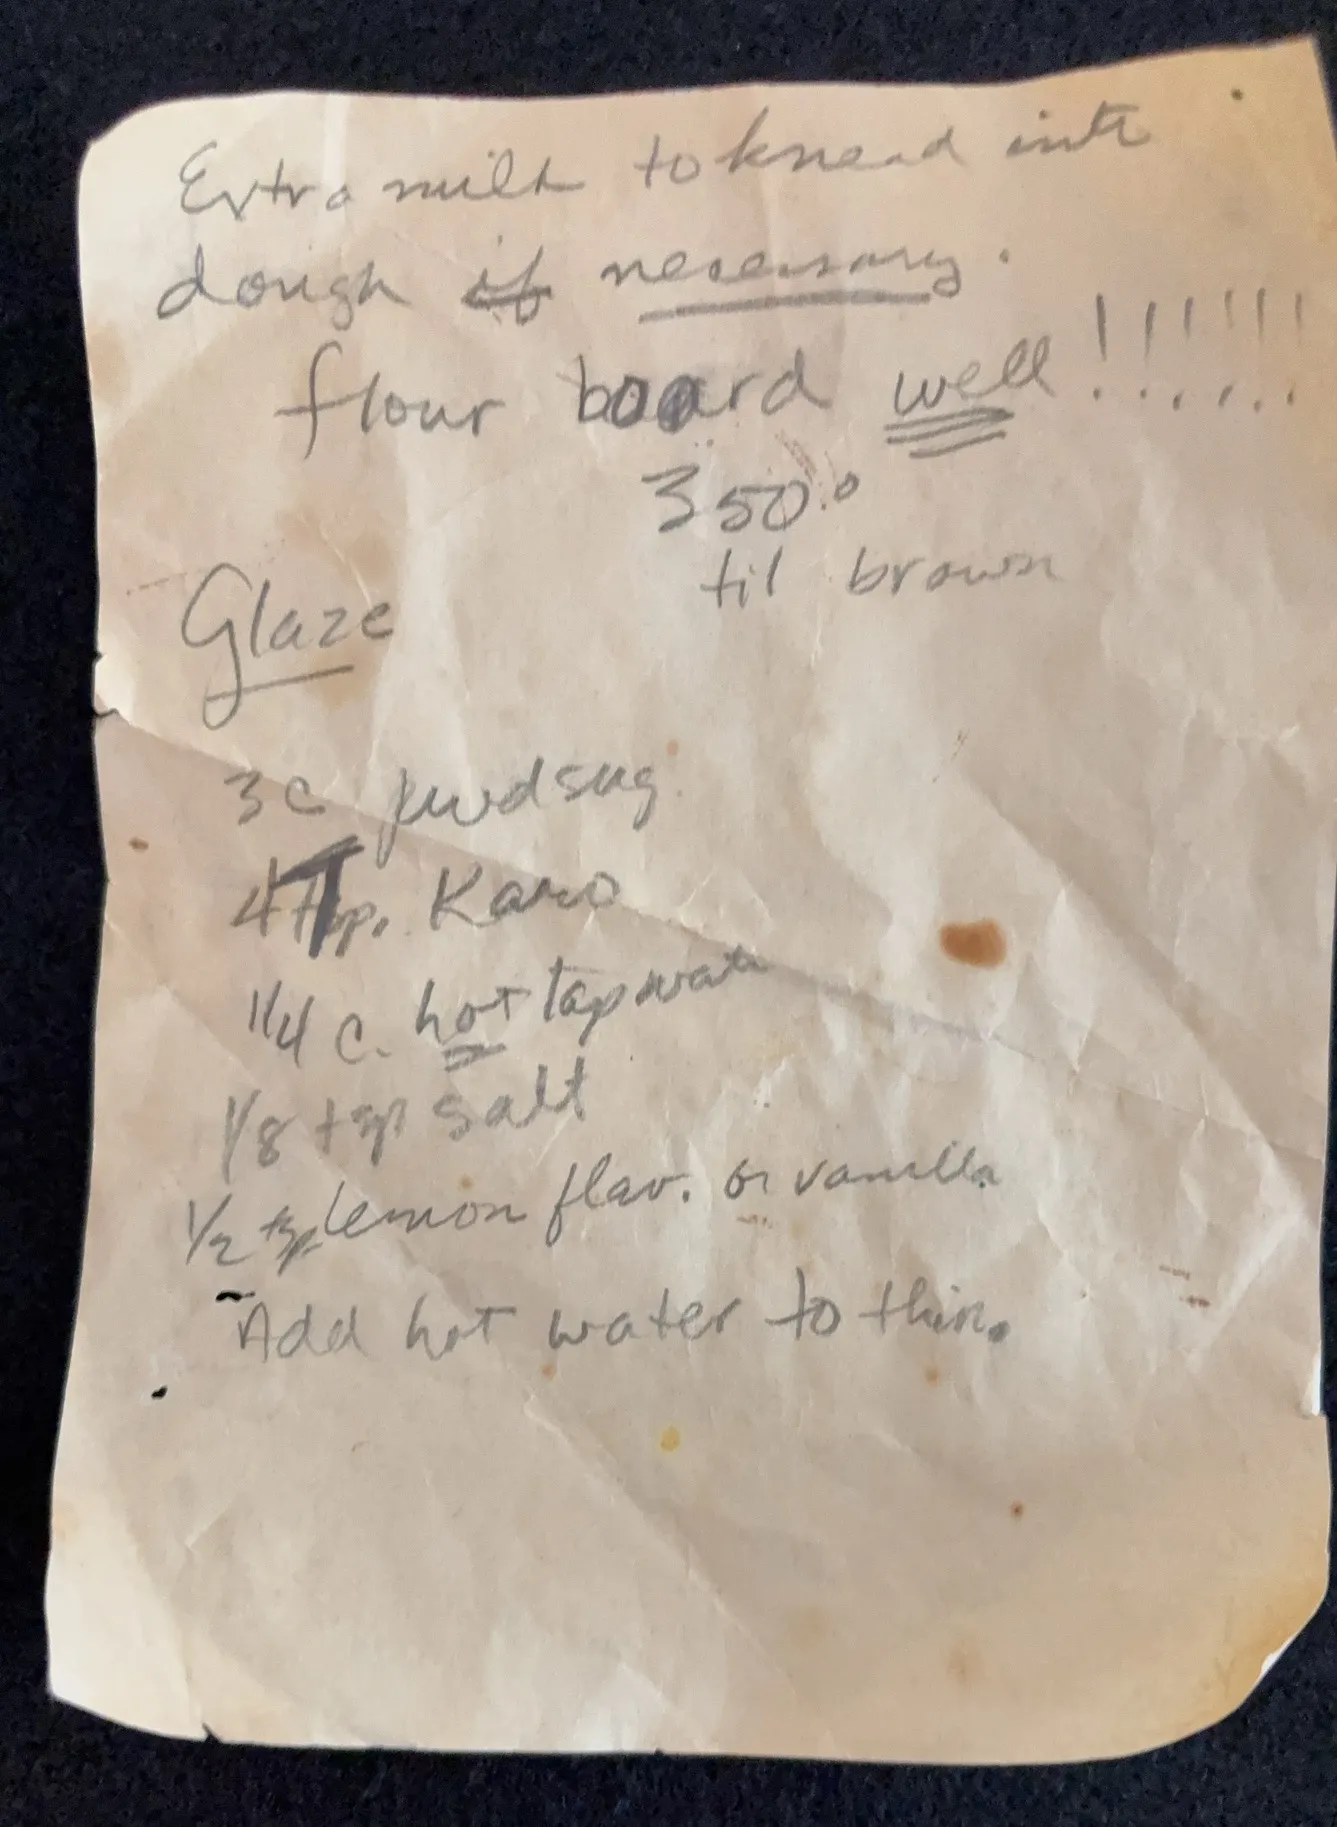 Extra milk to knead into
dough if necessary.
flour board well!!!!!!
350°
til brown
Glaze
3 c pwd sug.
4 Tbp. Karo
1/4 c. hot tap water
1/8 tsp salt
1/2 tsp. lemon flav. or vanilla
Add hot water to thin.